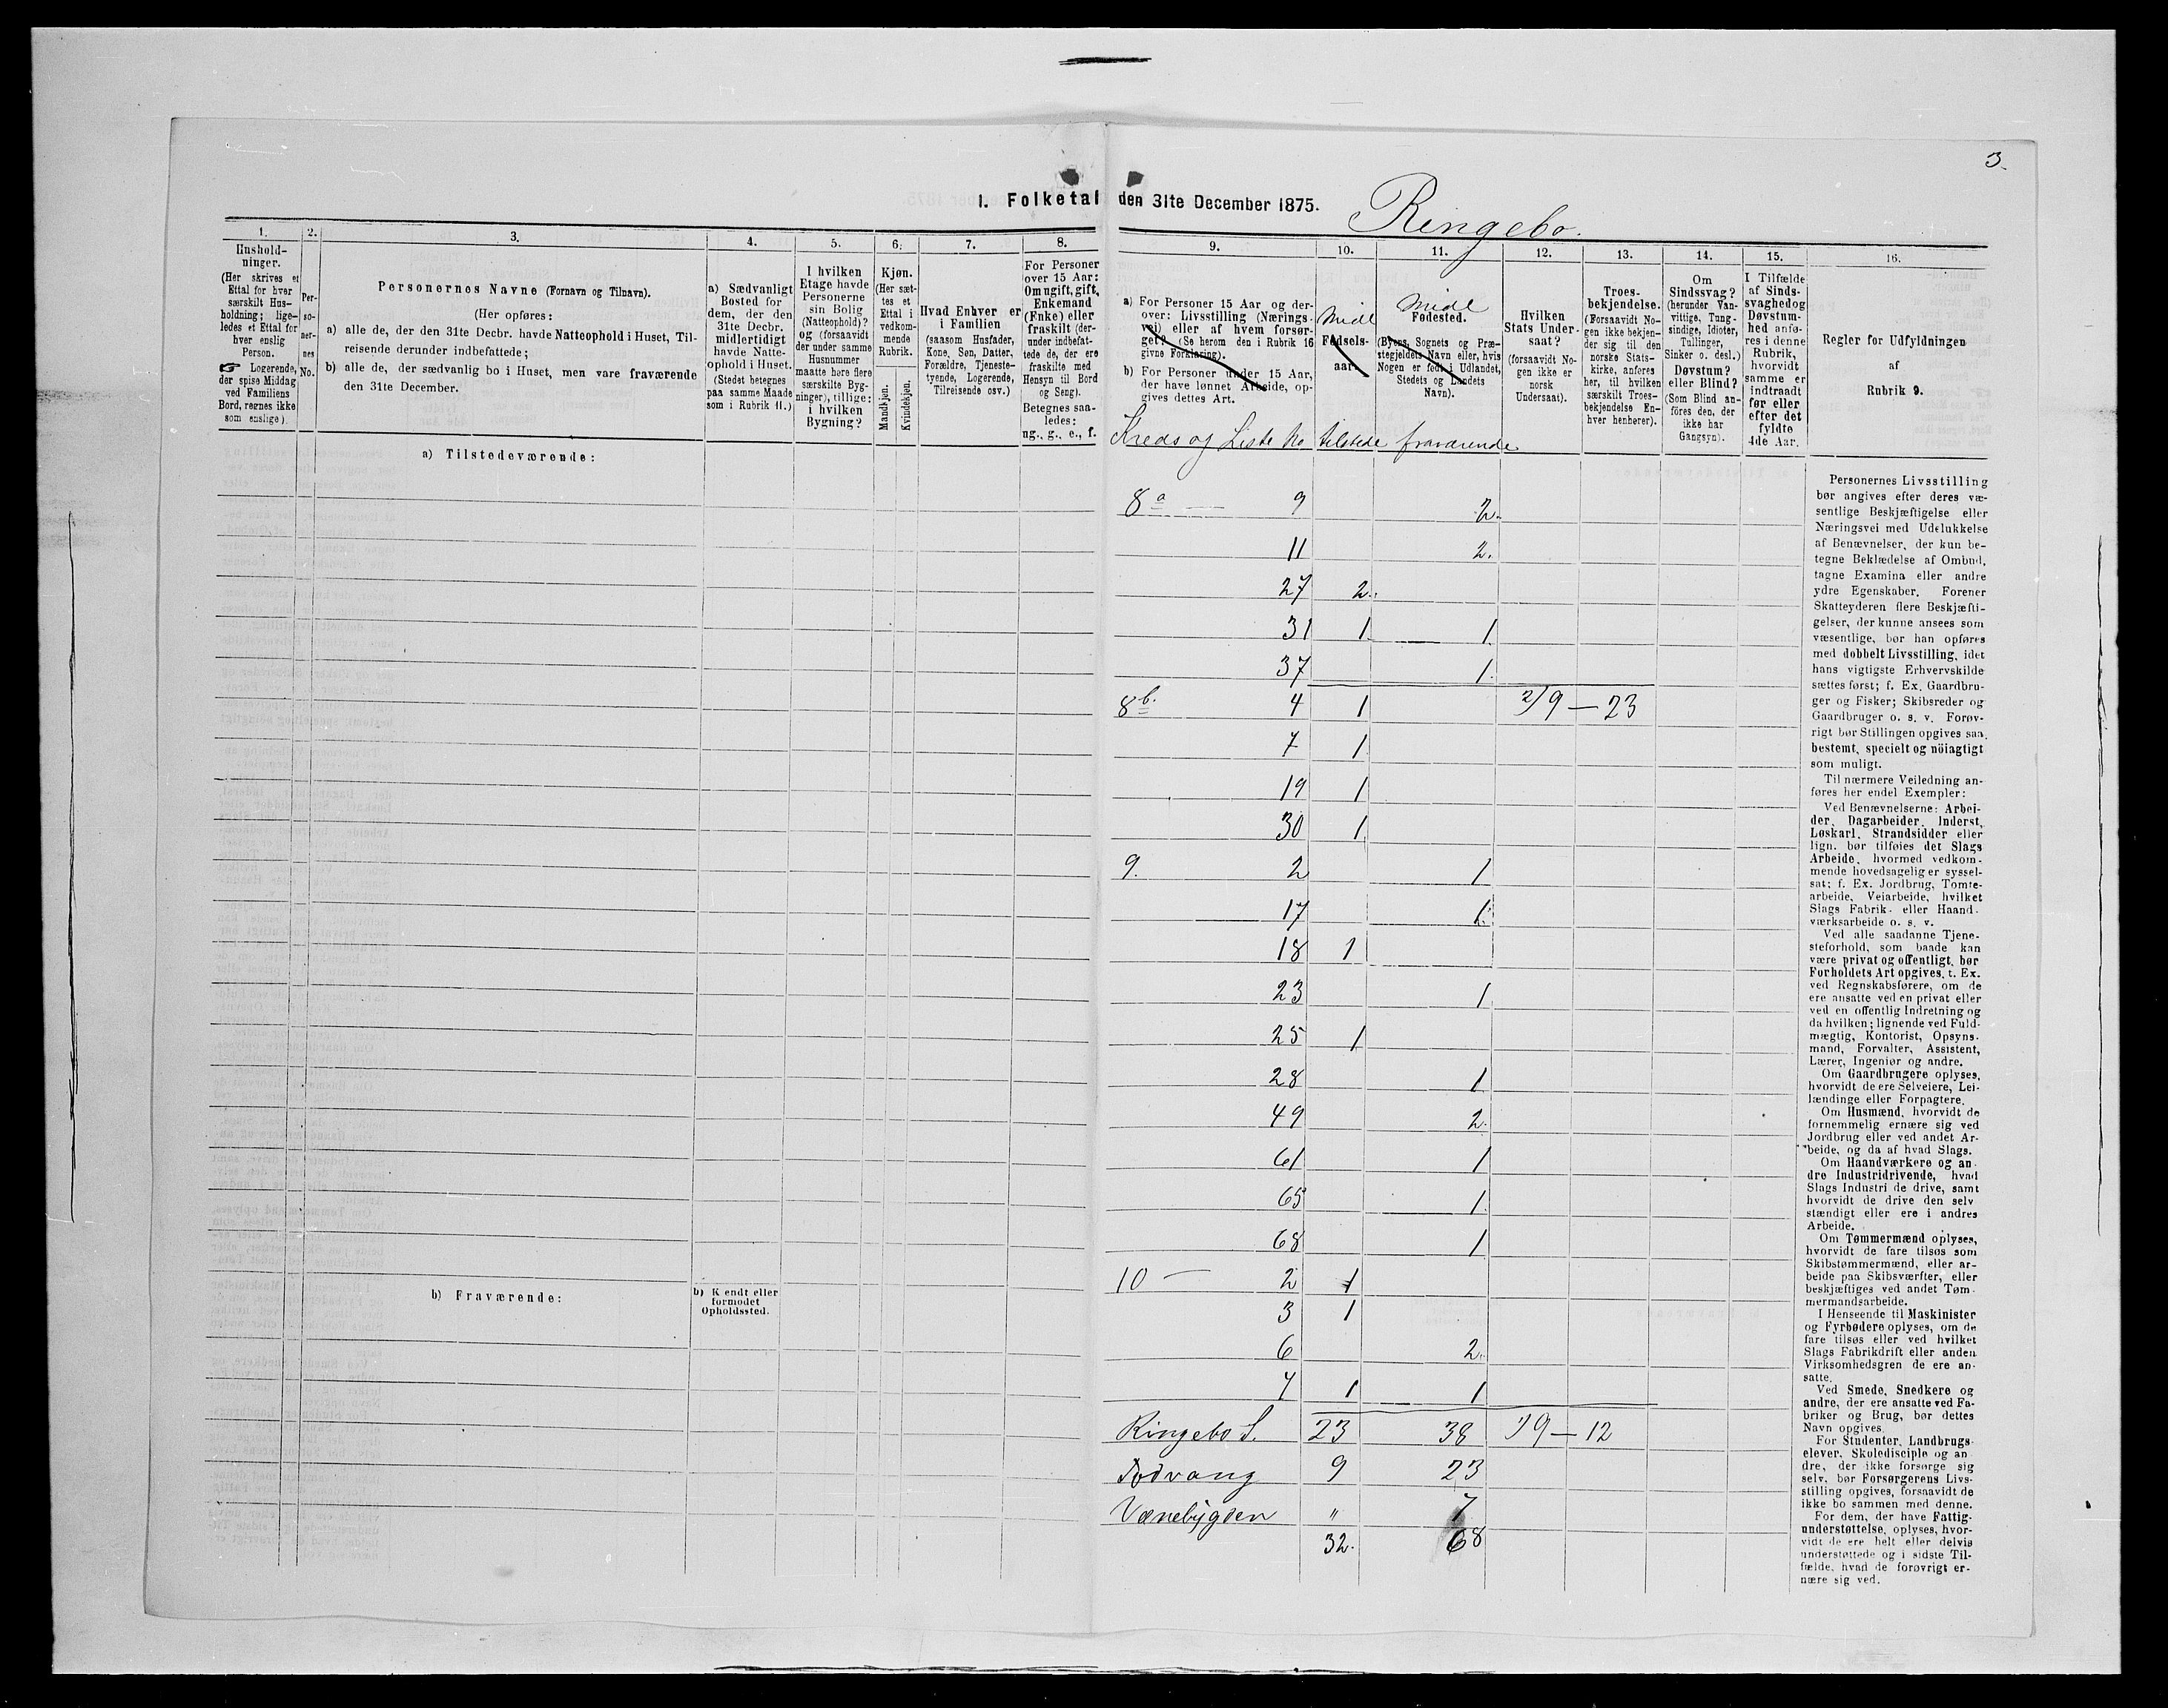 3.
1. Folketal den 31te December 1875.
Ringebo.
1.
Hushold-
ninger.
(Her skrives et
Ettal for hver
særskilt Hus-
holdning; lige-
ledes et Ettal for
hver enslig
Person.
☞ Logerende,
der spise Middag
ved Familiens
Bord, regnes ikke
som enslige).
2.
Per-
so-
ner-
nes
No.
3.
Personernes Navne (Fornavn og Tilnavn).
(Her opføres:
a) alle de, der den 31te Decbr. havde Natteophold i Huset, Til-
reisende derunder indbefattede;
b) alle de, der sædvanlig bo i Huset, men vare fraværende
den 31te December.
4.
a) Sædvanligt
Bosted for
dem, der den
31te Decbr.
midlertidigt
havde Natte-
ophold i Huset.
(Stedet betegnes
paa samme Maade
som i Rubrik 11.)
5.
I hvilken
Etage havde
Personerne
sin Bolig
(Natteophold)?
og (forsaavidt
der under samme
Husnummer
maatte høre flere
særskilte Byg-
ninger), tillige:
i hvilken
Bygning?
6.
Kjøn.
(Her sæt-
tes et
Ettal i
vedkom-
mende
Rubrik.
Mandkjøn.
Kvindekjøn.
7.
Hvad Enhver er
i Familien
(saasom Husfader,
Kone, Søn, Datter,
Forældre, Tjeneste-
tyende, Logerende,
Tilreisende osv.)
8.
For Personer
over 15 Aar:
Om ugift, gift,
Enkemand
(Enke) eller
fraskilt (der-
under indbefat-
tede de, der ere
fraskilte med
Hensyn til Bord
og Seng).
Betegnes saa-
ledes:
ug., g., e., f.
9.
a) For Personer 15 Aar og der-
over: Livsstilling (Nærings-
vei) eller af hvem forsør-
get? (Se herom den i Rubrik 16
givne Forklaring).
b) For Personer under 15 Aar,
der have lønnet Arbeide, op-
gives dettes Art.
10.
Midl
Fødsels-
aar.
11.
Midl
Fødested.
(Byens, Sognets og Præ-
stegjeldets Navn eller, hvis
Nogen er født i Udlandet,
Stedets og Landets
Navn).
12.
Hvilken
Stats Under-
saat?
(forsaavidt No-
gen ikke er
norsk
Undersaat).
13.
Troes-
bekjendelse.
(Forsaavidt No-
gen ikke bekjen-
der sig til den
norske Stats-
kirke, anføres
her, til hvilken
særskilt Troes-
bekjendelse En-
hver henhører).
14.
Om
Sindssvag?
(herunder Van-
vittige, Tung-
sindige, Idioter,
Tullinger,
Sinker o. desl.)
Døvstum?
eller Blind?
(Som Blind an-
føres den, der
ikke har
Gangsyn).
15.
I Tilfælde
af Sinds-
svaghed og
Døvstum-
hed anfø-
res i denne
Rubrik,
hvorvidt
samme er
indtraadt
før eller
efter det
fyldte
4de Aar.
16.
Regler for Udfyldningen
af
Rubrik 9.
Kreds og Liste No tilstede fraværende
a) Tilstedeværende:
8a — 9 2.
11 2.
27 2.
31 1 1.
37 1.
8b. 4 1 2/9 — 23
7 1
19 1
30 1.
9. 2 1
17 1.
18 1
23 1.
25 1
28 1
49 2.
61 1
65 1.
68 1
10 — 2 1
3 1
6 2.
7 1 1
Ringebo S. 23 38 1/9 — 12
9 23
Vænebygden " 7
32. 68
b) Fraværende:
b) Kendt eller
formodet
Opholdssted.
Personernes Livsstilling
bør angives efter deres væ-
sentlige Beskjæftigelse eller
Næringsvei med Udelukkelse
af Benævnelser, der kun be-
tegne Beklædelse af Ombud,
tagne Examina eller andre
ydre Egenskaber. Forener
Skatteyderen flere Beskjæfti-
gelser, der kunne ansees som
væsentlige, bør han opføres
med dobbelt Livsstilling, idet
hans vigtigste Erhvervskilde
sættes først; f. Ex. Gaardbru-
ger og Fisker; Skibsreder og
Gaardbruger o. s. v. Forøv-
rigt bør Stillingen opgives saa
bestemt, specielt og nöiagtigt
som muligt.
Til nærmere Veiledning an-
føres her endel Exempler:
Ved Benævnelserne: Arbei-
der, Dagarbeider, Inderst,
Løskarl, Strandsidder eller
lign. bør tilføies det Slags
Arbeide, hvormed vedkom-
mende hovedsagelig er syssel-
sat; f. Ex. Jordbrug, Tomte-
arbeide, Veiarbeide, hvilket
Slags Fabrik- eller Haand-
værksarbeide o. s. v.
Ved alle saadanne Tjene-
steforhold, som baade kan
være privat og offentligt, bør
Forholdets Art opgives, t. Ex.
ved Regnskabsførere, om de
ere ansatte ved en privat eller
ved en offentlig Indretning og
da hvilken; lignende ved Fuld-
mægtig, Kontorist, Opsyns-
mand, Forvalter, Assistent,
Lærer, Ingeniør og andre.
Om Gaardbrugere oplyses,
hvorvidt de ere Selveiere, Lei-
lændinge eller Forpagtere.
Om Husmænd, hvorvidt de
fornemmelig ernære sig ved
Jordbrug eller ved andet Ar-
beide, og da af hvad Slags.
Om Haandværkere og an-
dre Industridrivende, hvad
Slags Industri de drive, samt
hvorvidt de drive den selv
stændigt eller ere i andres
Arbeide.
Om Tømmermænd oplyses,
hvorvidt de fare tilsøs som
Skibstømmermænd, eller ar-
beide paa Skibsværfter, eller
beskjæftiges ved andet Tøm-
mermandsarbeide.
I Henseende til Maskinister
og Fyrbødere oplyses, om de
fare tilsøs eller ved hvilket
Slags Fabrikdrift eller anden
Virksomhedsgren de ere an-
satte.
Ved Smede, Snedkere og
andre, der ere ansatte ved Fa-
briker og Brug, bør dettes
Navn opgives.
For Studenter, Landbrugs-
elever, Skoledisciple og an-
dre, der ikke forsørge sig
selv, bør Forsørgerens Livs-
stilling opgives, forsaavidt de
ikke bo sammen med denne.
For dem, der have Fattig-
understøttelse, oplyses, hvor-
vidt de ere helt eller delvis
understøttede og i sidste Til-
fælde, hvad de forøvrigt er-
nære sig ved.